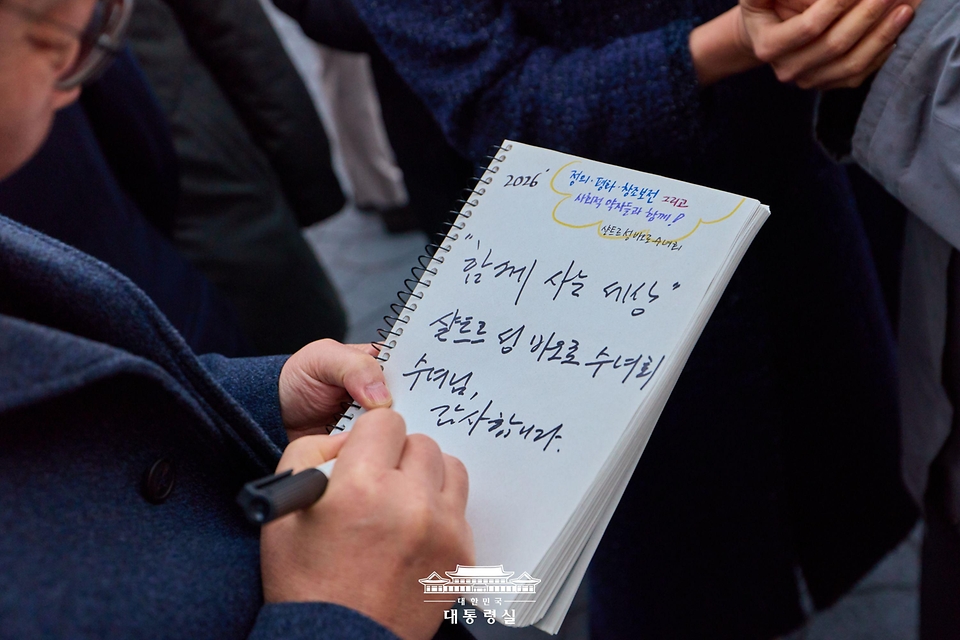 2026'
정의·평화·창조보전 그리고
사회적 약자들과 함께!
샬트르성바오로수녀회
"함께 사는 세상"
샬트르 성 바오로 수녀회
수녀님,
감사합니다.
대한민국
대통령실